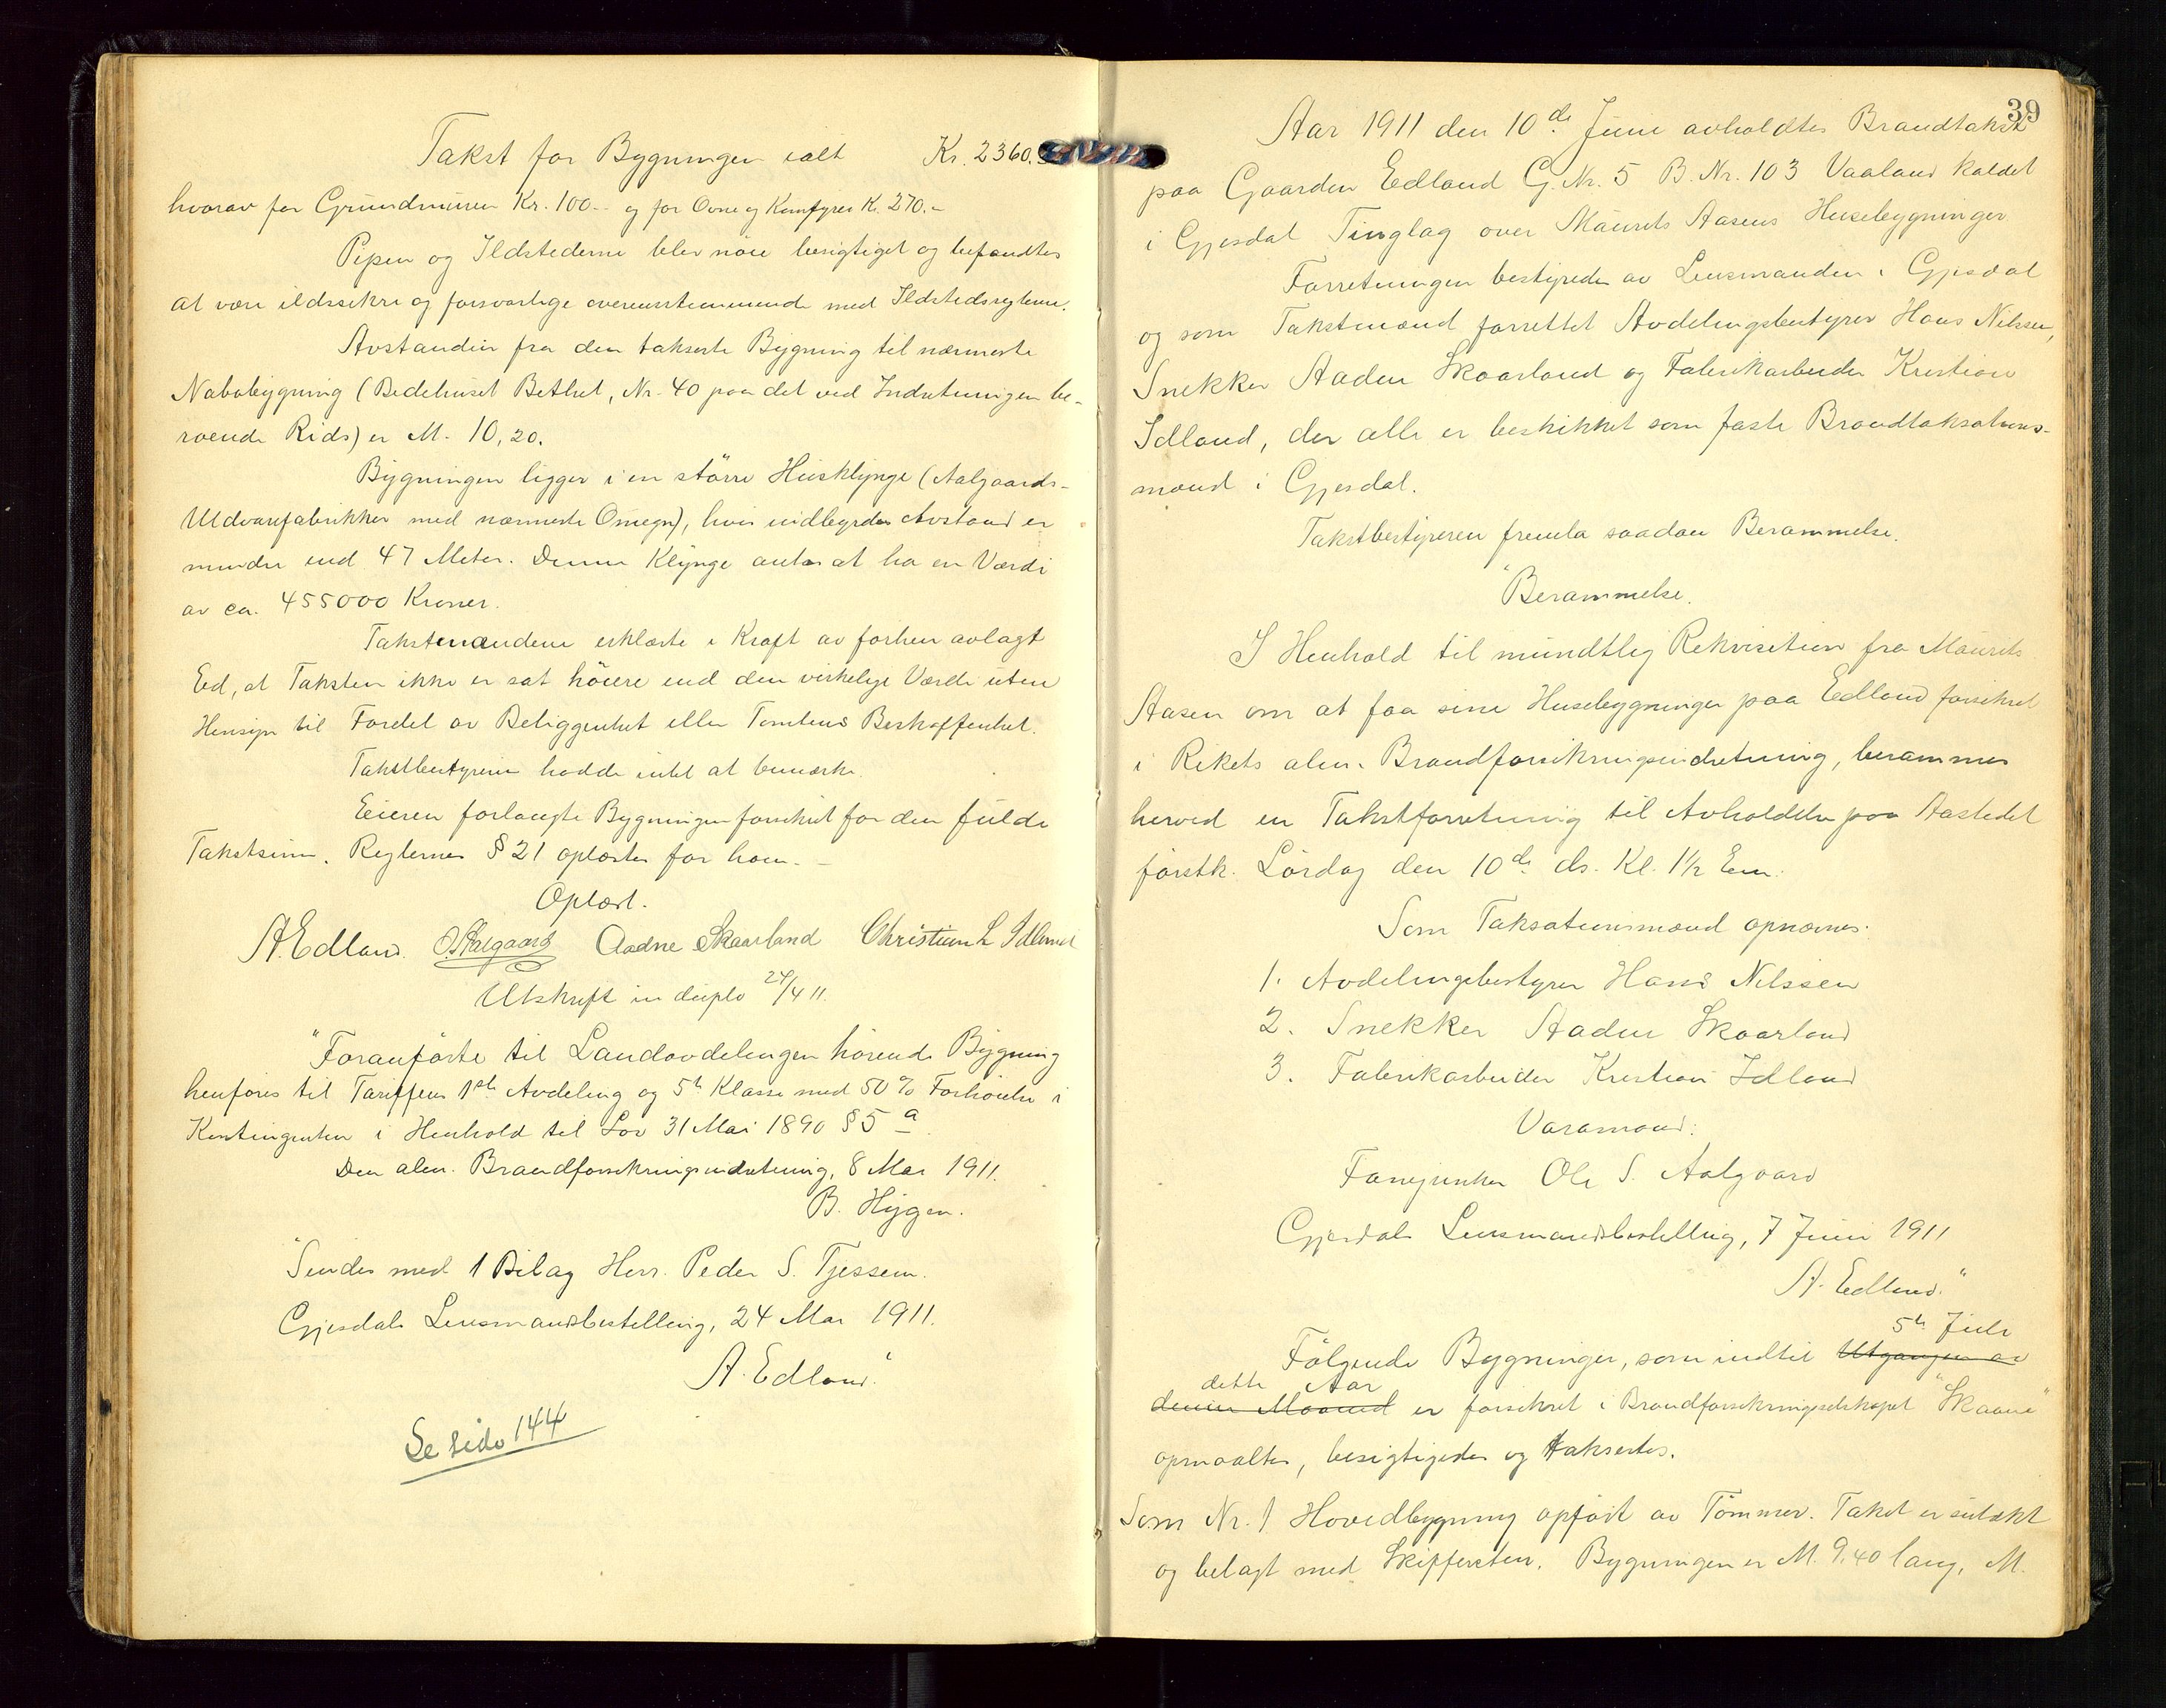 Takst for Bygningen ialt Kr. 2360.-
hvorav for Grundmuren Kr. 100.- og for Ovne og Komfyrer K. 270.-
Pipen og Ildstederne blev nöie besigtiget og befandtes
at være ildssikre og forsvarlige overensstemmende med Ildstedsreglerne.
Avstanden fra den takserte Bygning til nærmeste
Nabobygning (Bedehuset Bethel, Nr. 40 paa det ved Indretningen be-
roende Rids) er M. 10,20.
Bygningen ligger i en större Husklynge (Aalgaards-
Uldvarefabrikker med nærmeste Omegn), hvis indbyrdes Avstand er
mindre end 47 Meter. Denne Klynge antas at ha en Værdi
av ca. 455000 Kroner.
Takstmændene erklærte i Kraft av forhen avlagt
Ed, at Taksten ikke er sat höiere end den virkelige Værdi uten
Hensyn til Fordel av Beliggenhet eller Tomtens Beskaffenhet.
Takstbestyreren hadde intet at bemærke.
Eieren forlangte Bygningen forsikret for den fulde
Takstsum. Reglernes § 21 oplæstes for ham. -
Oplæst.
A. Edland. O. S. Aalgaard Aadne Skaarland Christian L Idland
Utskrift in duplo 24/4 11.
"Foranförte til Landavdelingen hörende Bygning
henföres til Tariffens 1ste Avdeling og 5te Klasse med 50 % Forhöielse i
Kontingenten i Henhold til Lov 31 Mai 1890 § 5 a
Den alm. Brandforsikringsindretning, 8 Mai 1911.
B. Hygen.
"Sendes med 1 Bilag Herr. Peder S. Tjessem.
Gjesdals Lensmandsbestilling, 24 Mai 1911.
A. Edland."
Se side 144
39
Aar 1911 den 10de Juni avholdtes Brandtakst
paa Gaarden Edland G. Nr. 5 B. Nr. 103 Vaaland kaldet
i Gjesdal Tinglag over Maurits Aasens Husebygninger
Forretningen bestyredes av Lensmanden i Gjesdal
og som Takstmænd forrettet Avdelingsbestyrer Hans Nilssen,
Snekker Aadne Skaarland og Fabrikarbeider Kristian
Idland, der alle er beskikket som faste Brandtaksations-
mænd i Gjesdal.
Takstbestyreren fremla saadan Berammelse.
"Berammelse.
I Henhold til mundtlig Rekvisition fra Maurits
Aasen om at faa sine Husebygninger paa Edland forsikret
i Rikets alm. Brandforsikringsindretning, berammes
herved en Takstforretning til Avholdelse paa Aastedet
förstk. Lördag den 10de ds. Kl. 1½ Em.
Som Taksationsmænd opnævnes:
1. Avdelingsbestyrer Hans Nilssen
2. Snekker Aadne Skaarland
3. Fabrikarbeider Kristian Idland
Varamand:
Fanejunker Ole S. Aalgaard
Gjesdals Lensmandsbestilling, 7 Juni 1911
A. Edland."
5te Juli
Fölgende Bygninger, som indtil Utgangen av
dette Aar
denne Maaned er forsikret i Brandforsikringsselskapet "Skaane"
opmaaltes, besigtigedes og taksertes.
Som Nr. 1 Hovedbygning opfört av Tömmer. Taket er sutækt
og belagt med Skiffersten. Bygningen er M. 9,40 lang, M.